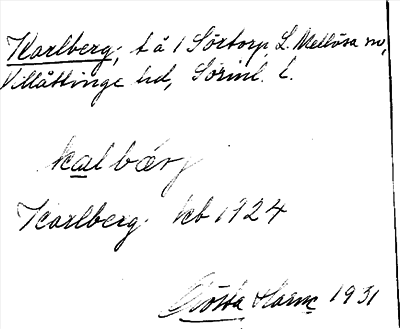 Karlberg, t å 1 Sörtorp, L. Mellösa sn,
Villåttinge hd, Sörml. l.
kalbærj
Karlberg hkb 1924
Gösta Harne 1931